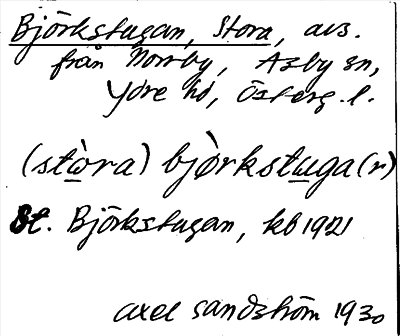 Björkstugan, Stora, avs.
från Norrby, Asby sn,
Ydre hd, Österg. l.
(stὼra) bjò̢rkstωga(r)
St. Björkstugan, kb 1921
Axel Sandström 1930